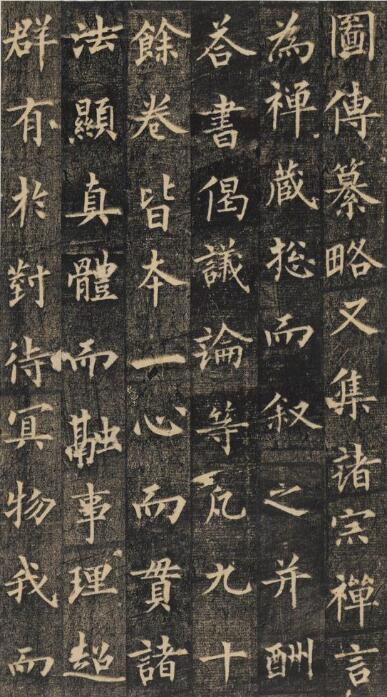 圖傳纂略又集諸宗禪言
為禅藏揔而叙之并酬
荅書偈議論等凡九十
餘卷皆本一心而貫諸
法顯真體而融事理超
群有於對待冥物我而